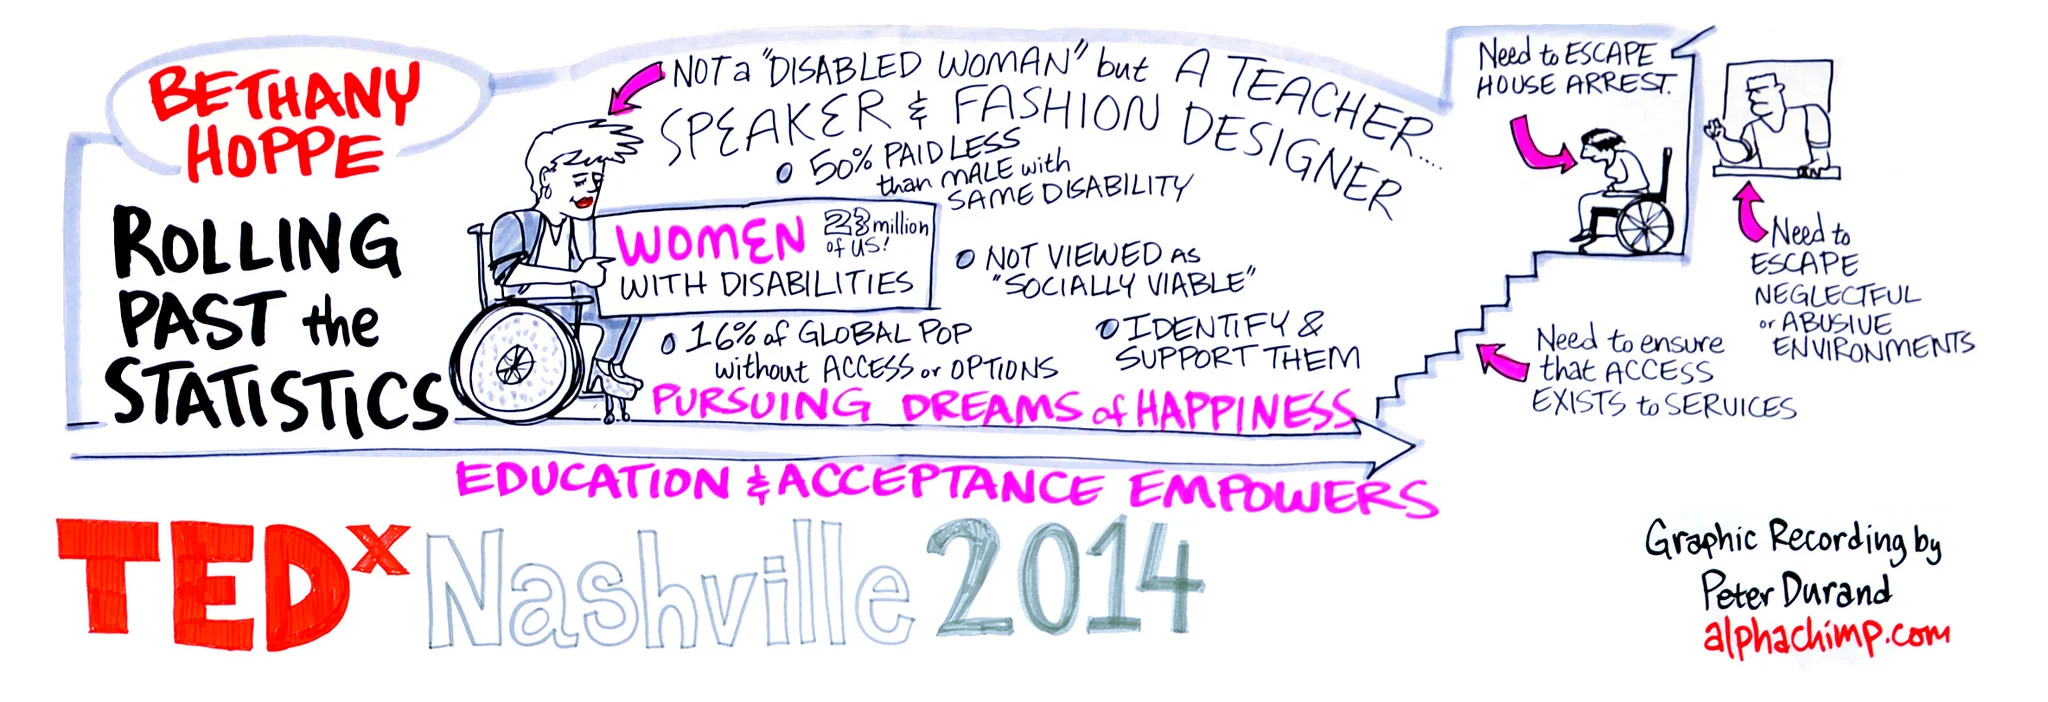 BETHANY
HOPPE
ROLLING
PAST the
STATISTICS
NOT a "DISABLED WOMAN" but A TEACHER....
SPEAKER & FASHION DESIGNER
50% PAID LESS
than MALE with
SAME DISABILITY
WOMEN
23 million
of US!
WITH DISABILITIES
NOT VIEWED AS
"SOCIALLY VIABLE"
16% of GLOBAL POP
without ACCESS or OPTIONS
IDENTIFY &
SUPPORT THEM
PURSUING DREAMS of HAPPINESS
EDUCATION & ACCEPTANCE EMPOWERS
Need to ESCAPE
HOUSE ARREST.
Need to
ESCAPE
NEGLECTFUL
or ABUSIVE
ENVIRONMENTS
Need to ensure
that ACCESS
EXISTS to SERVICES
TEDx Nashville 2014
Graphic Recording by
Peter Durand
alphachimp.com